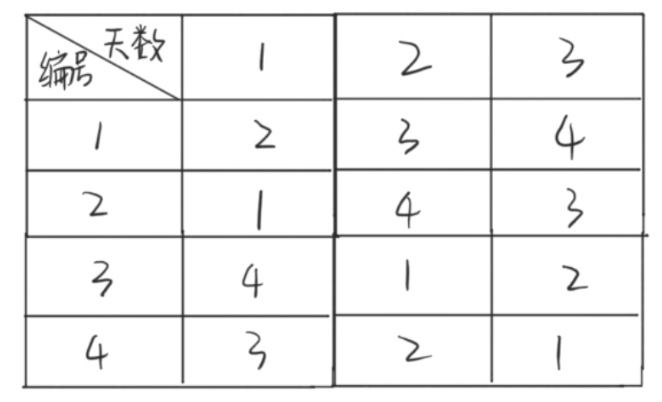 天数
编号
1 2 3
1 2 3 4
2 1 4 3
3 4 1 2
4 3 2 1